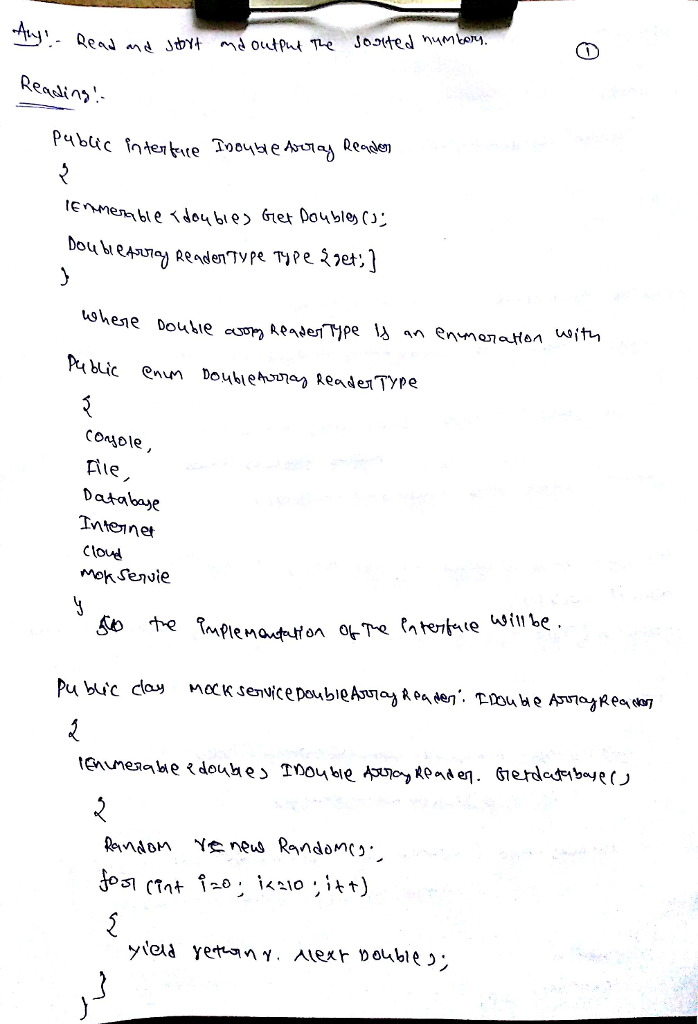 Ans:- Read and sort and output The sorted numbers.
1
Reading:-
Public interface IDouble Array Reader
{
IEnmerable <double> Get Doubles ();
Double Array Reader Type Type {get;}
}
where Double array Reader Type is an enumeration with
Public enum Double Array Reader Type
{
Console,
File,
Database
Internet
Cloud
Mok Servie
}
So the implementation of The interface will be.
Public class Mock service Double Array Reader: IDouble Array Reader
{
IEnumerable <double> IDouble Array Reader. Getdatabase()
{
Random r= new Random();
for (int i=0; i<=10; i++)
{
yield return r. Next Double );
}
}